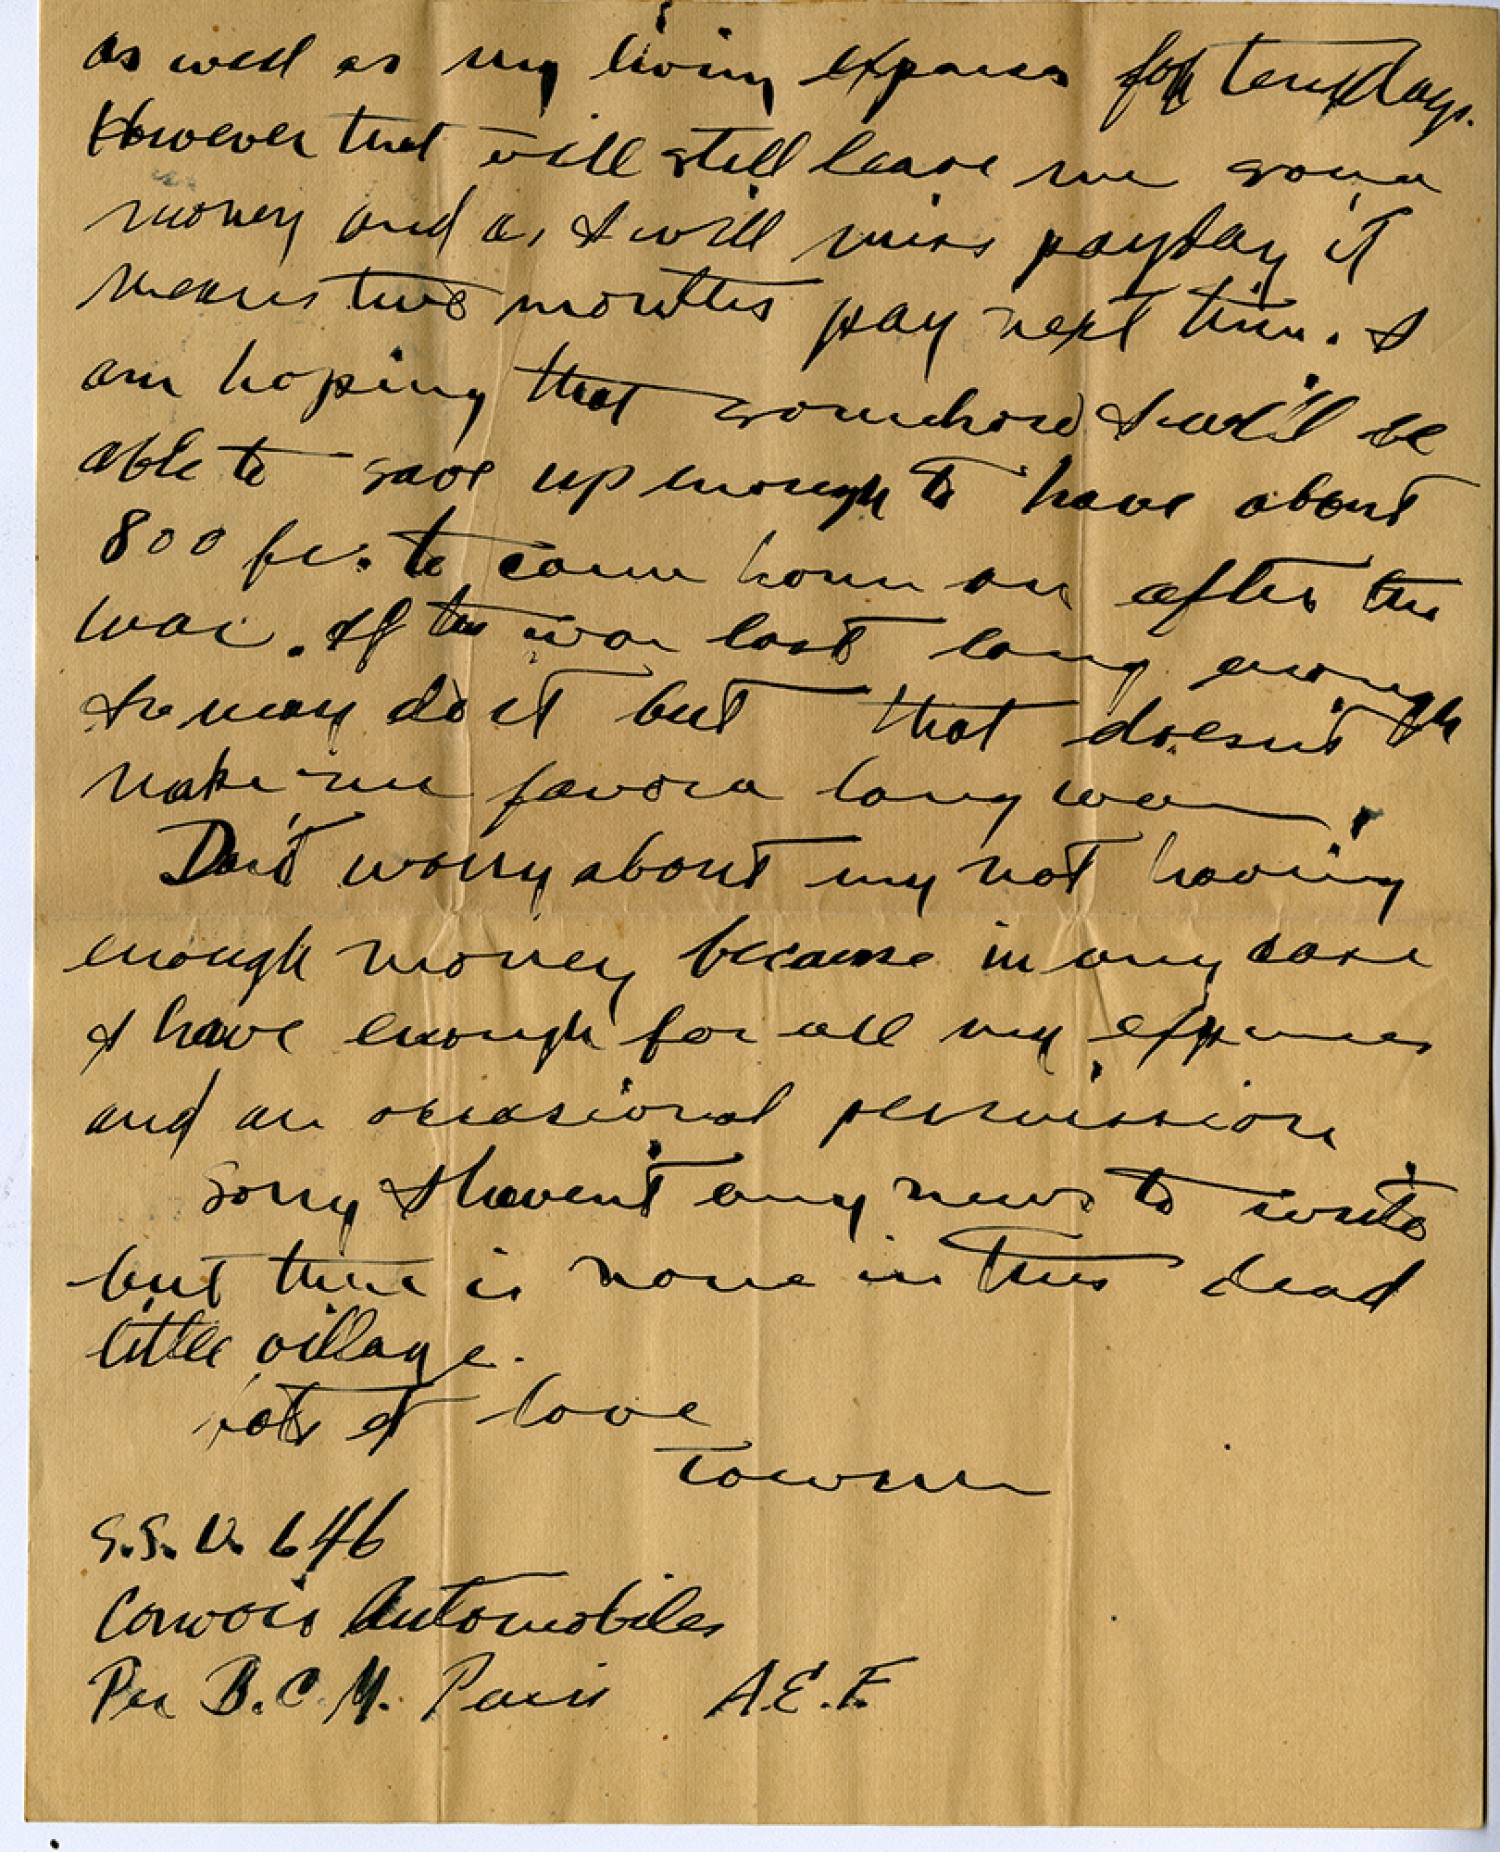 as well as my living expenses for ten days.
However that will still leave me some
money and as I will miss payday it
means two months pay next time. I
am hoping that somehow I will be
able to save up enough to have about
800 frs. to come home on after the
war. If the war last long enough
I may do it but that doesn't
make me favor a long war.
Don't worry about my not having
enough money because in any case
I have enough for all my expenses
and an occasional permission
Sorry I haven't any news to write
but there is none in this dead
little village.
Lots of love
S.S.U. 646
Convois Automobiles
Par B.C.M. Paris A.E.F.